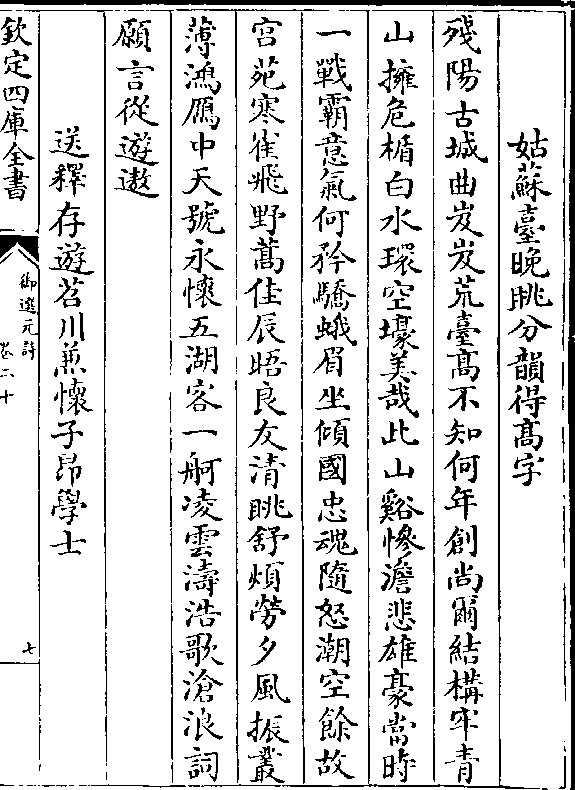 姑蘇臺晚眺分韻得髙字
殘陽古城曲岌岌荒臺髙不知何年創尚爾結構牢青
山擁危楯白水環空壕美哉此山谿慘澹悲雄豪當時
一戰霸意氣何矜驕蛾眉坐傾國忠魂隨怒潮空餘故
宫苑寒雀飛野蒿佳辰晤良友清眺舒煩勞夕風振叢
薄鴻鴈中天號永懷五湖客一舸凌雲濤浩歌滄浪詞
願言從遊遨
送釋存遊苕川兼懷子昂學士
欽定四庫全書
御選元詩
卷二十
七